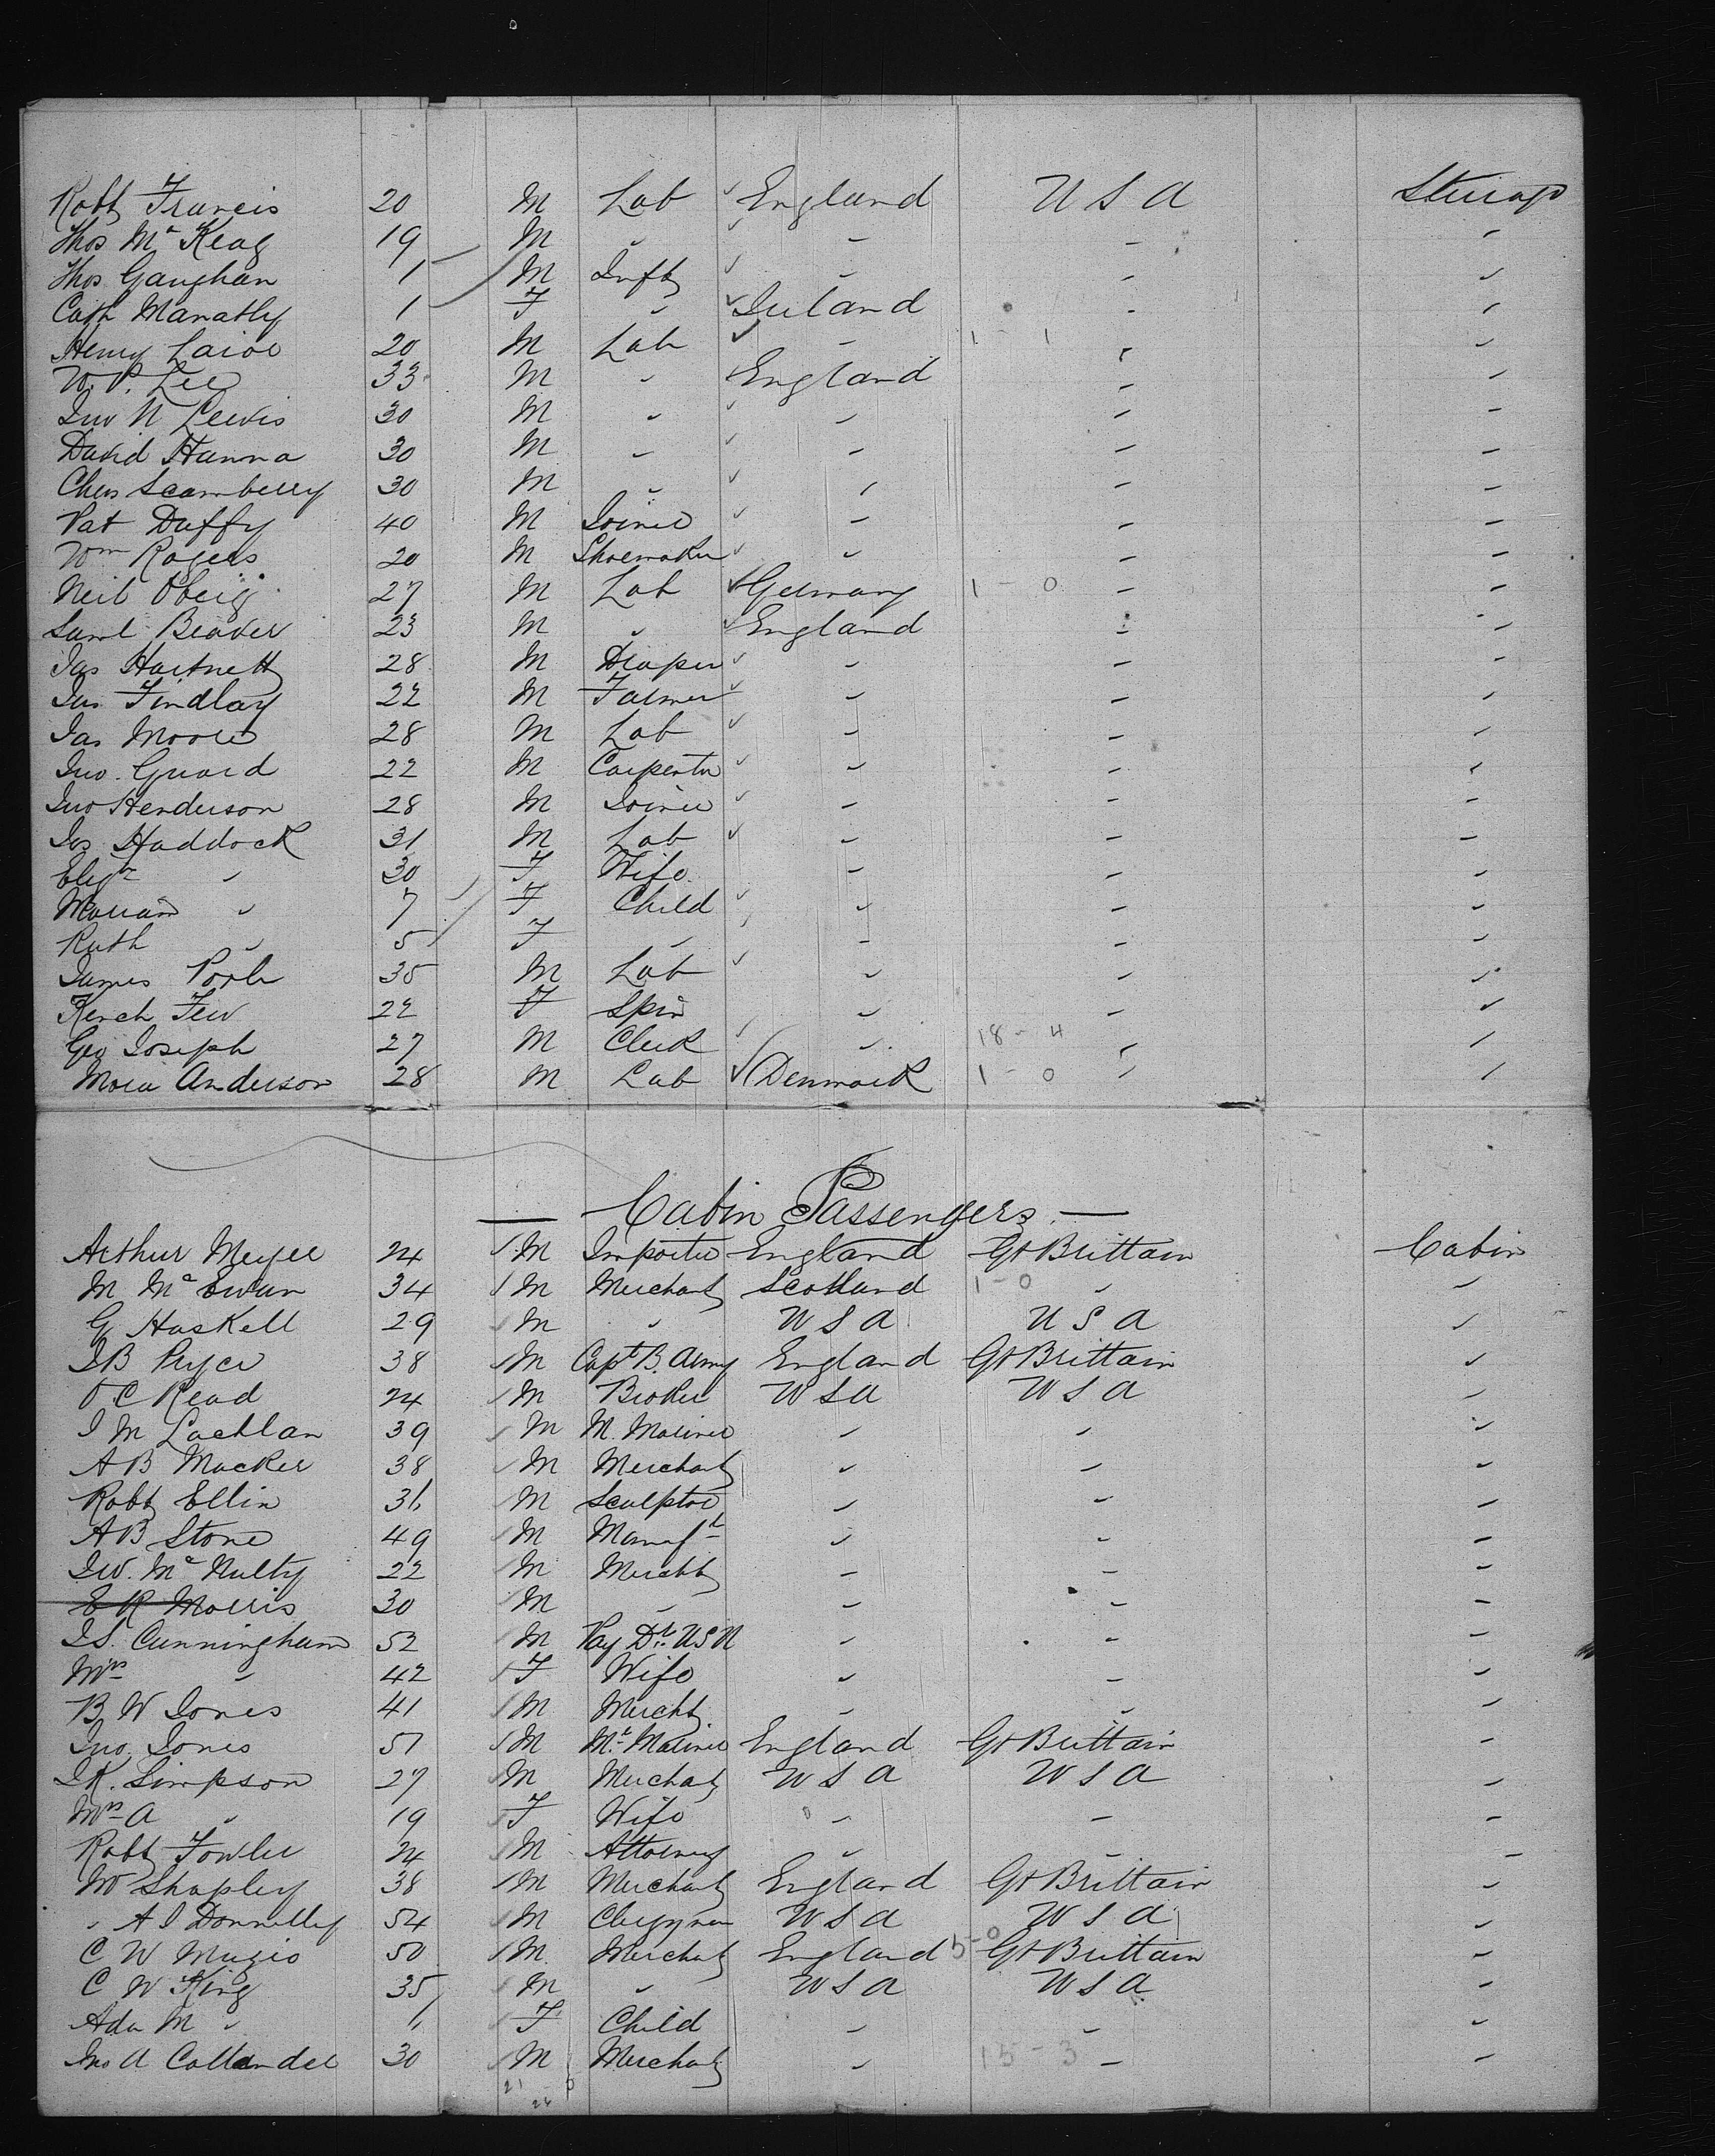 Robt Francis 20 M Lab England U S A Steirage
Thos Mc Keag 19 M " " " "
Thos Gaughan 1 M Inft " " "
Cath Manatly 1 F " Ireland " "
Henry 20 M Lab " 1 - 1 " "
W. P. Lee 33 M " England " "
Jno N Lewis 30 M " " " "
David Hanna 30 M " " " "
Chas Scamberry 30 M " " " "
Pat Duffy 40 M Joiner " " "
Wm Rogers 20 M Shoemaker " " "
Neil 27 M Lab Germany 1 - 0 " "
Saml Beaver 23 M " England " "
Jas Hartnett 28 M Draper " " "
Jas Findlay 22 M Farmer " " "
Jas Moore 28 M Lab " " "
Jno. Guard 22 M Carpenter " " "
Jno Henderson 28 M Joiner " " "
Jos Haddock 31 M Lab " " "
Elizr " 30 F Wife " " "
" 7 F Child " " "
Ruth " 5 F " " " "
James Poole 35 M Lab " " "
Few 22 F Spin " " "
Geo Joseph 27 M Clerk " 18 - 4 " "
Anderson 28 M Lab Denmark 1 - 0 " "
— Cabin Passengers —
Arthur Meyer 24 M Importer England Gt Brittain Cabin
M Mc Ewan 34 M Merchant Scotland 1 - 0 " "
G Haskell 29 M " U S A U S A "
J B Pryce 38 M Capt B. Army England Gt Brittain "
O C Read 24 M Broker U S A U S A "
J M Lachlan 39 M M. Mariner " " "
A B Macker 38 M Merchant " " "
Robt Ellin 31 M Sculptor " " "
A B Stone 49 M Manuft " " "
J W. Mc Nulty 22 M Mercht " " "
E R Morris 30 M " " " "
J S. Cunningham 52 M Pay Dt. U S N " " "
Mrs " 42 F Wife " " "
B W Jones 41 M Mercht " " "
Jno. Jones 51 M Mr. Mariner England Gt Brittain "
J K. Simpson 27 M Merchant U S A U S A "
Mrs A " 19 F Wife " " "
Robt Fowler 24 M Attorney " " "
Shapley 38 M Merchant England Gt Brittain "
" A J Donnelly 54 M Clergyman U S A U S A "
C W Muzio 50 M Merchant England 5 - 0 Gt Brittain "
C W King 35 M " U S A U S A "
Ada M " 1 F Child " " "
Jno A Callander 30 M Merchant " 13 - 3 " "
21 0
24